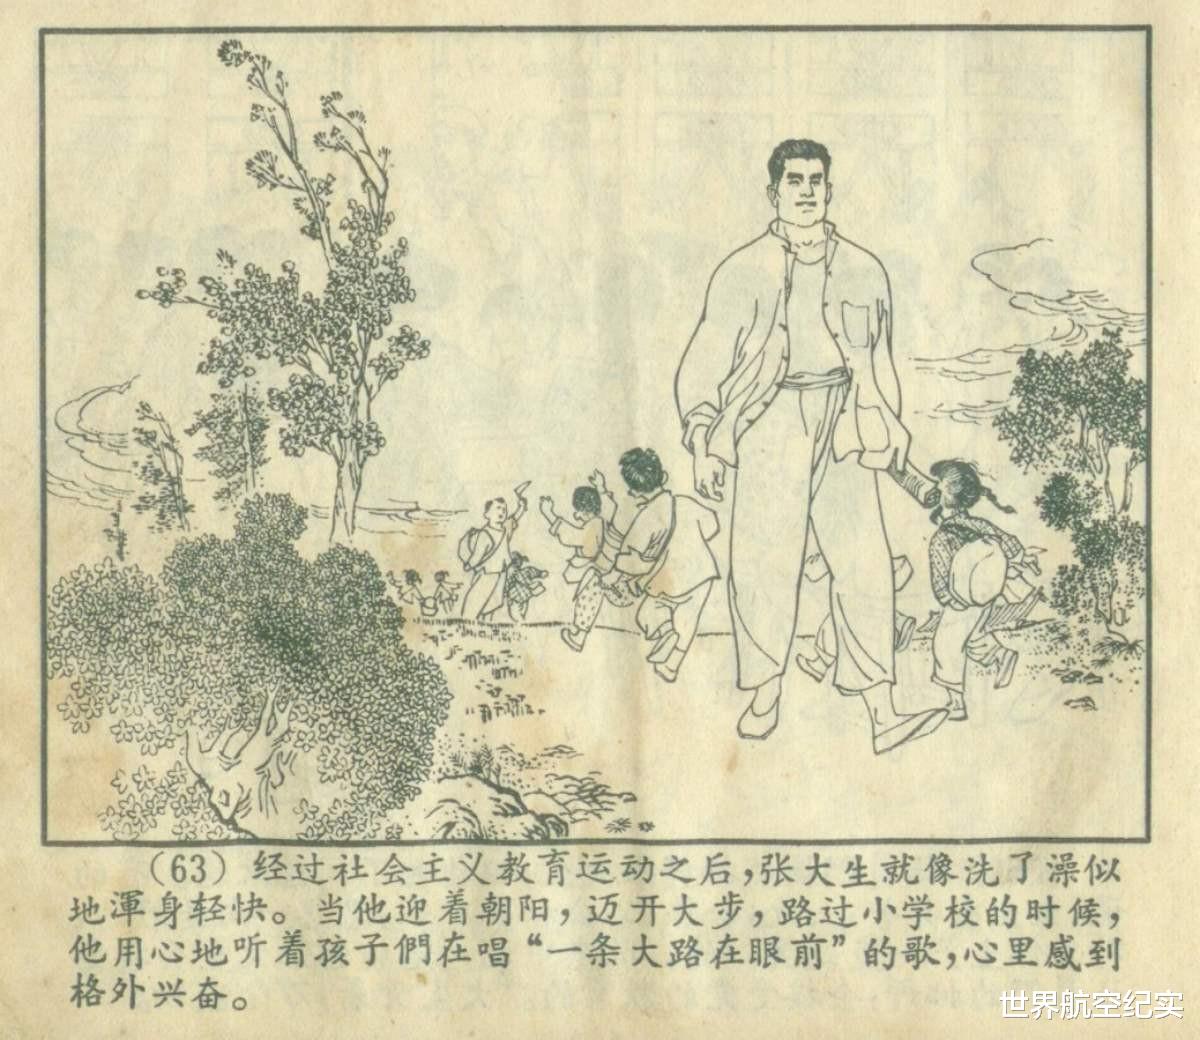 （63）经过社会主义教育运动之后，张大生就像洗了澡似
地渾身轻快。当他迎着朝阳，迈开大步，路过小学校的时候，
他用心地听着孩子們在唱“一条大路在眼前”的歌，心里感到
格外兴奋。
世界航空纪实